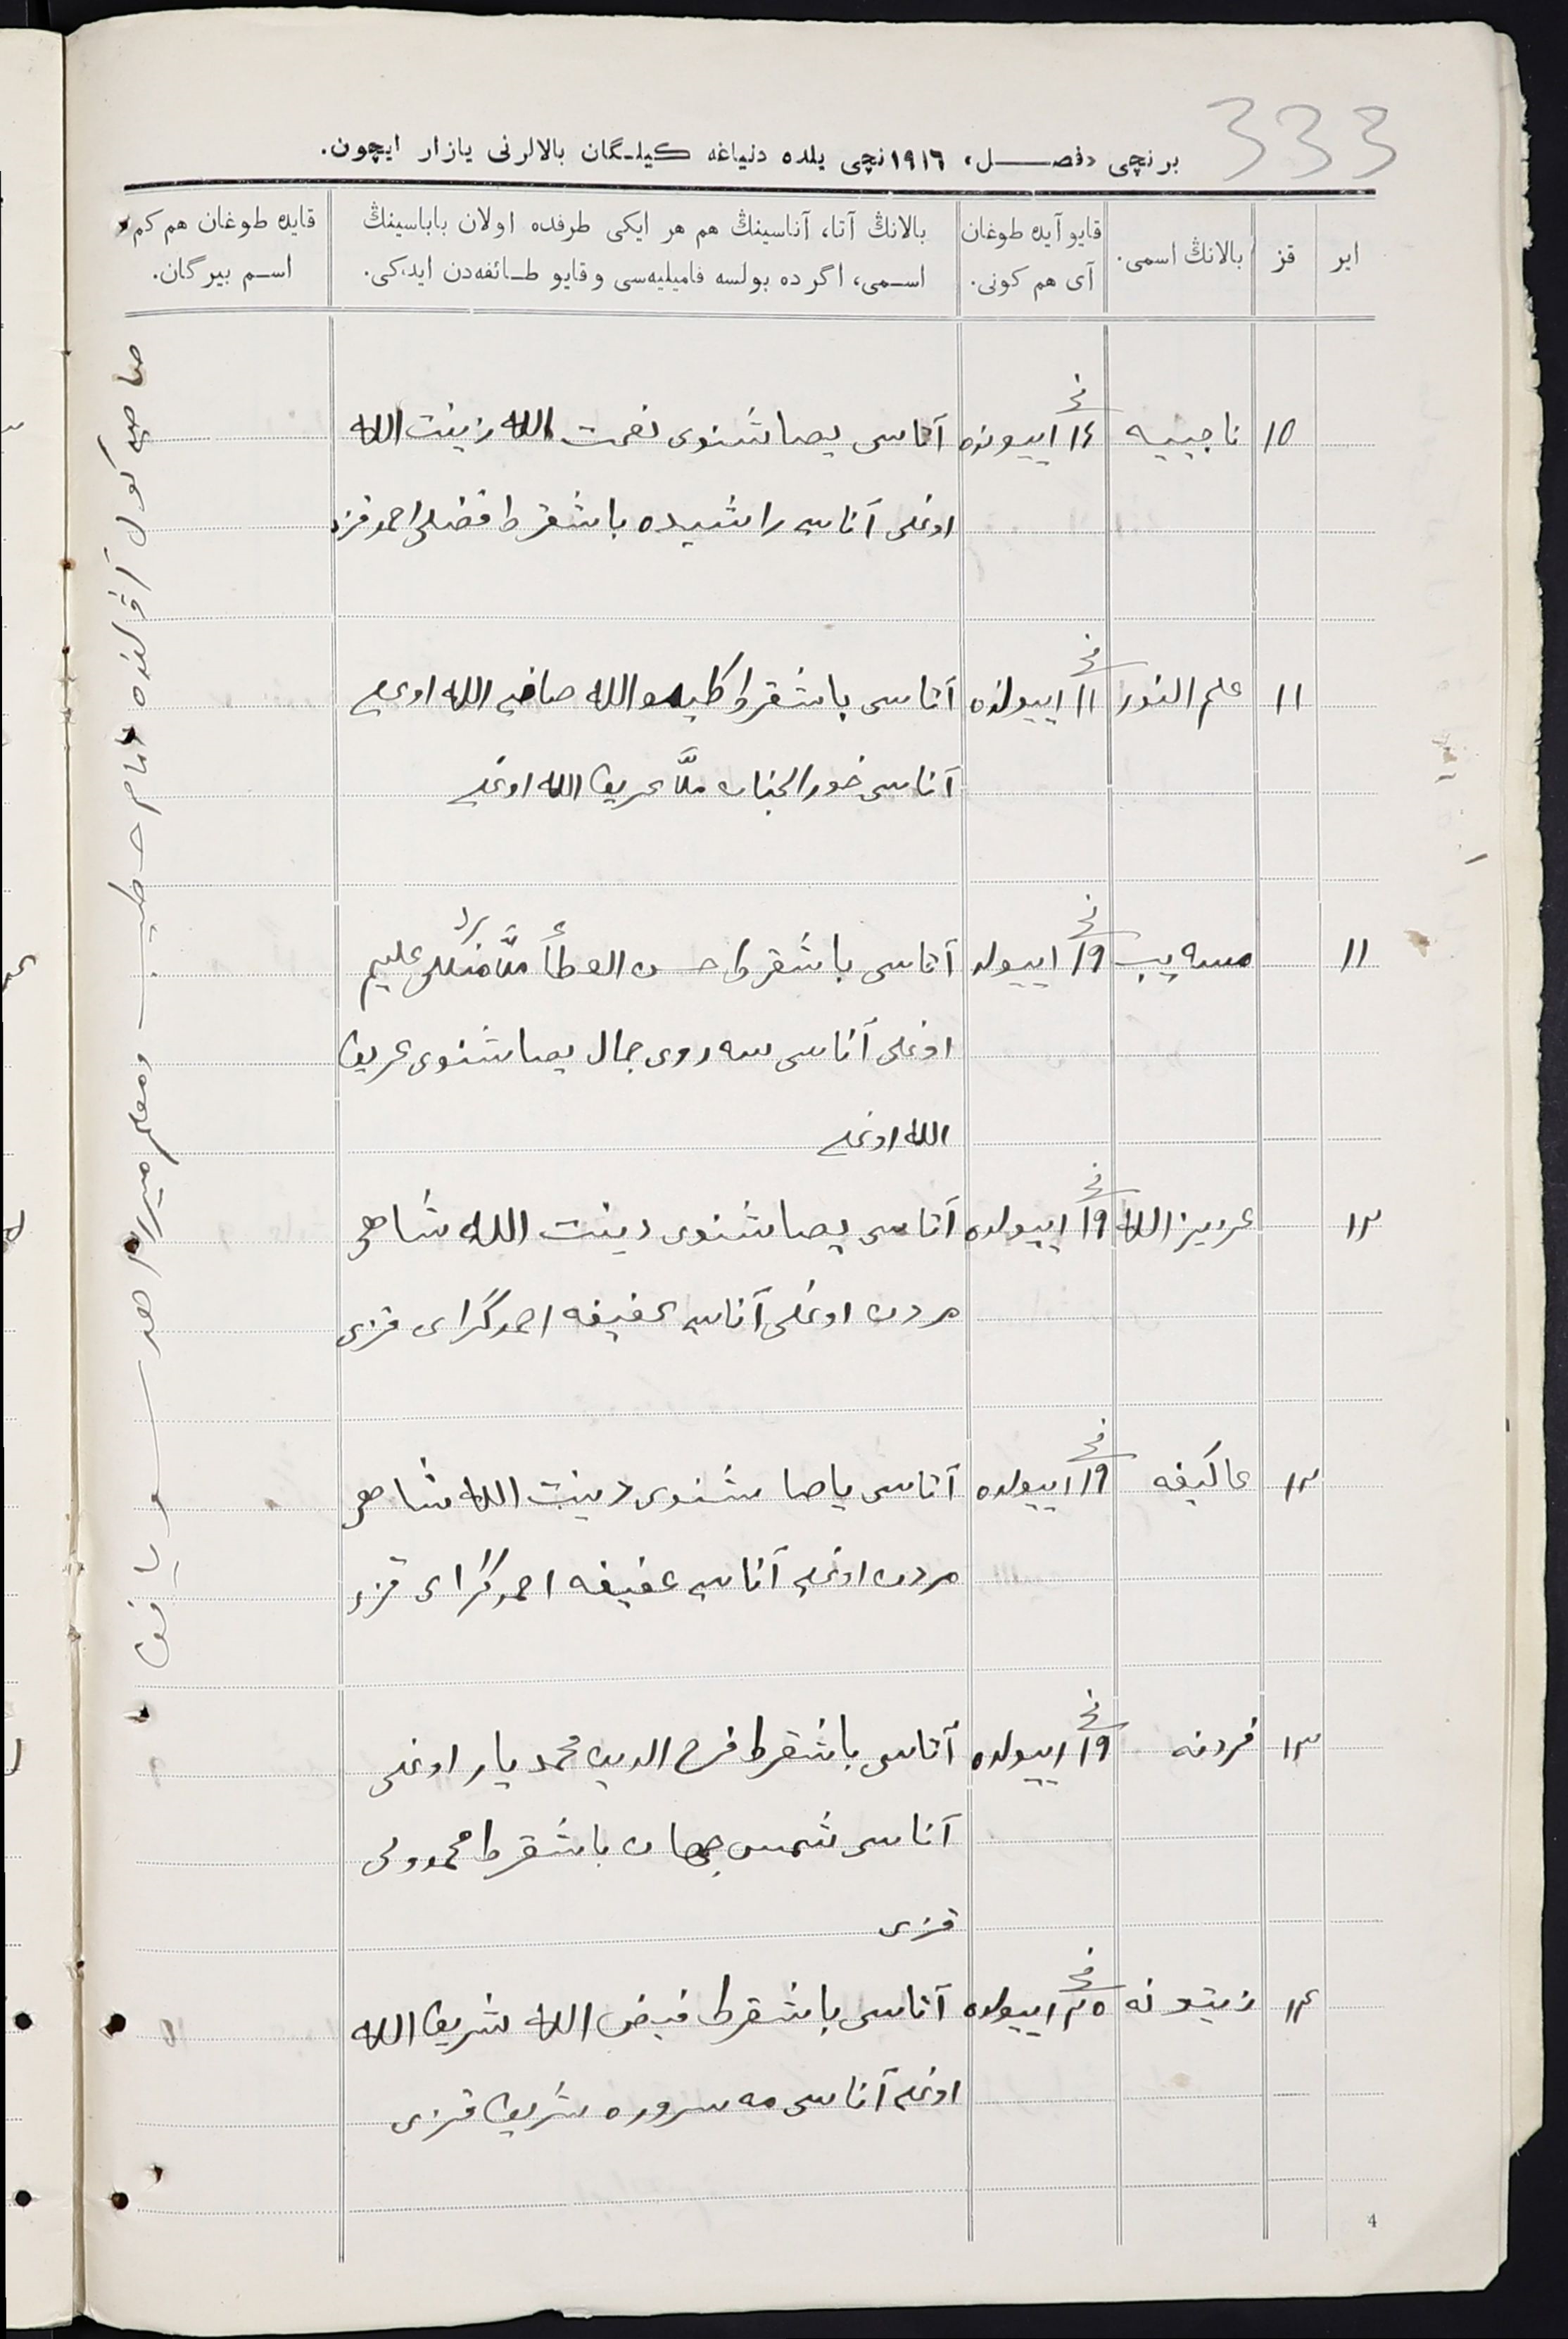 333
برنچی «فصل» ١٩١٦نچی یلده دنیاغه کیلگان بالالرنی یازار ایچون.
ایر
قز
بالانڭ اسمی.
قایو آیده طوغان
آی هم کونی.
بالانڭ آتا، آناسینڭ هم هر ایکی طرفده اولان باباسینڭ
اسمی، اگر ده بولسه فامیلیه‌سی و قایو طائفه‌دن ایدکی.
قایده طوغان هم کم
اسم بیرگان.
١٥ ناجییه ١٤ اییونده آتاسی یصاشنوی نعمت الله زینت الله
اوغلی آناسی راشیده باشقرط فضلی احمد قزی
١١ علم النور ١١ اییولده آتاسی باشقرط الله صافی الله اوغلی
آناسی حورالجنان ملّا الله اوغلی
١١ ١٩ اییولده آتاسی باشقرط حسن العطأ ملّا علیم
اوغلی آناسی جمال یصاشنوی عریف
الله اوغلی
١٢ عزیز الله ١٩ اییولده آتاسی یصاشنوی دینت الله شاهی
مردن اوغلی آناسی عفیفه احمدگرای قزی
١٢ عاکیفه ١٩ اییولده آتاسی یاصاشنوی دینت الله شاهی
مردن اوغلی آناسی عفیفه احمدگرای قزی
١٣ فردنه ١٩ اییولده آتاسی باشقرط فرح الدین محمد یار اوغلی
آناسی شمس جهان باشقرط محمدولی
قزی
١٤ زیتونه ٢٥ اییولده آتاسی باشقرط فیض الله شریف الله
اوغلی آناسی مه سروره شریف قزی
امام خطیب و معلم
4